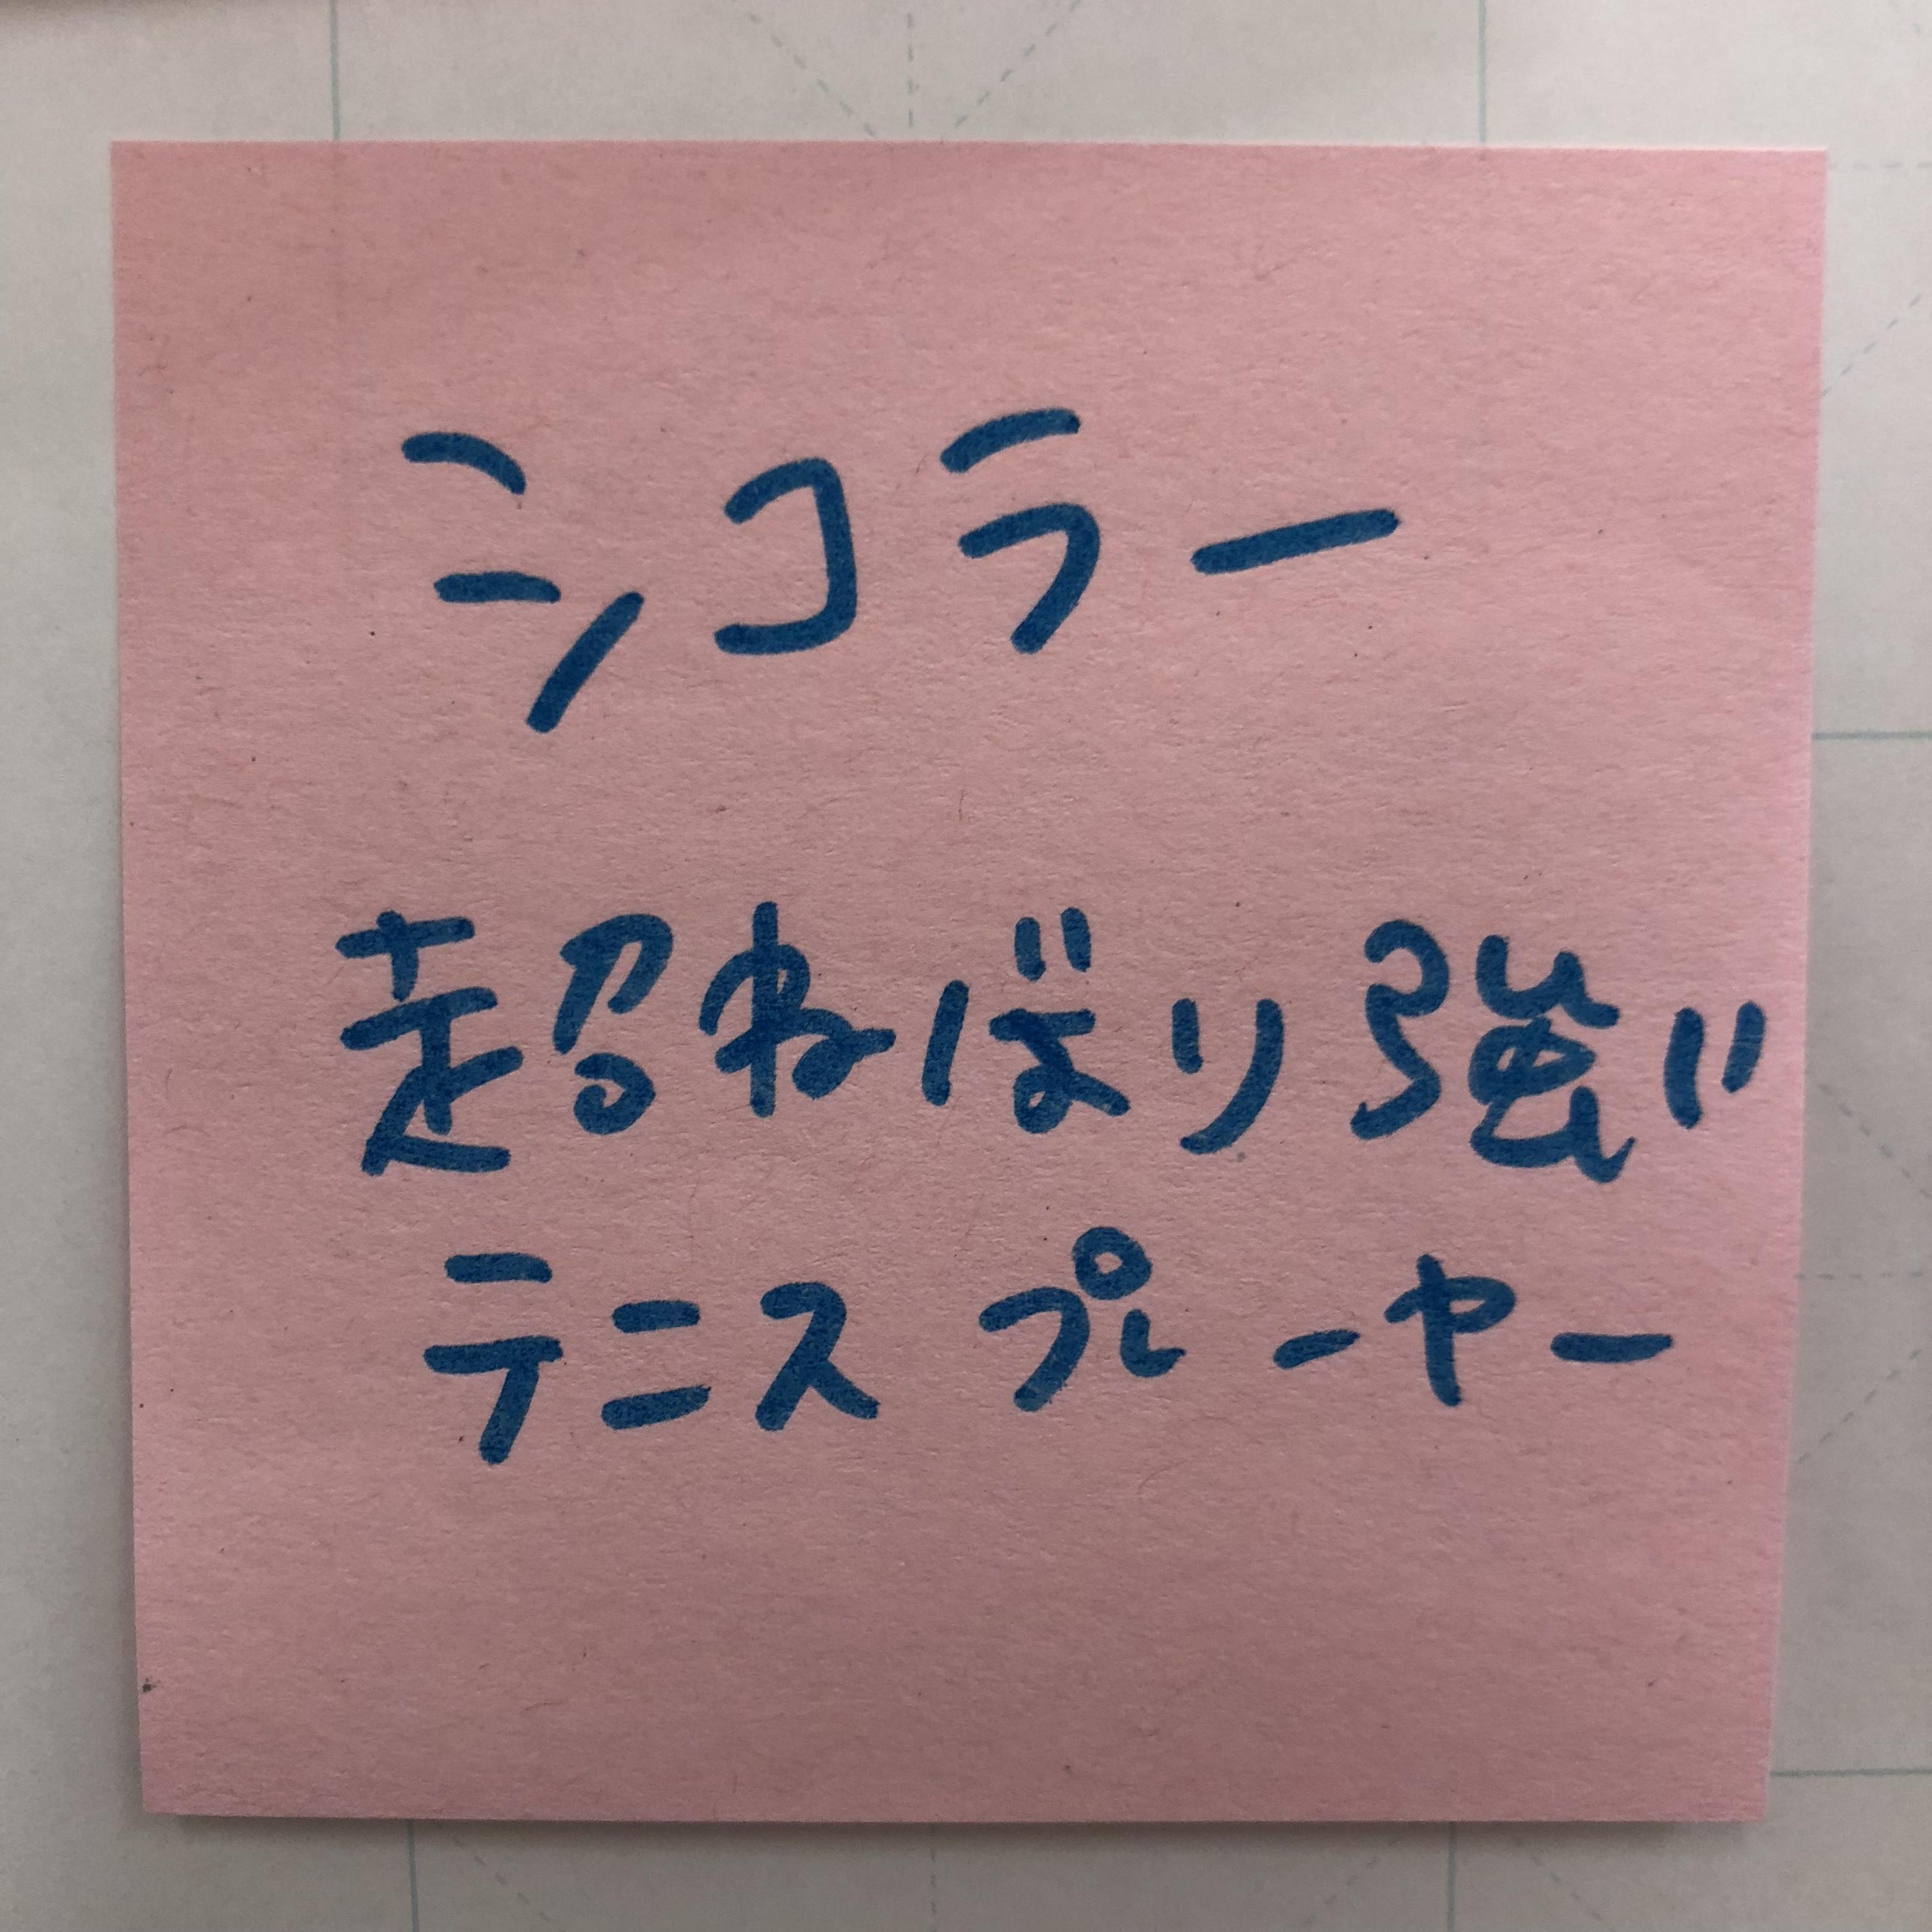 シコラー
超ねばり強い
テニスプレーヤー